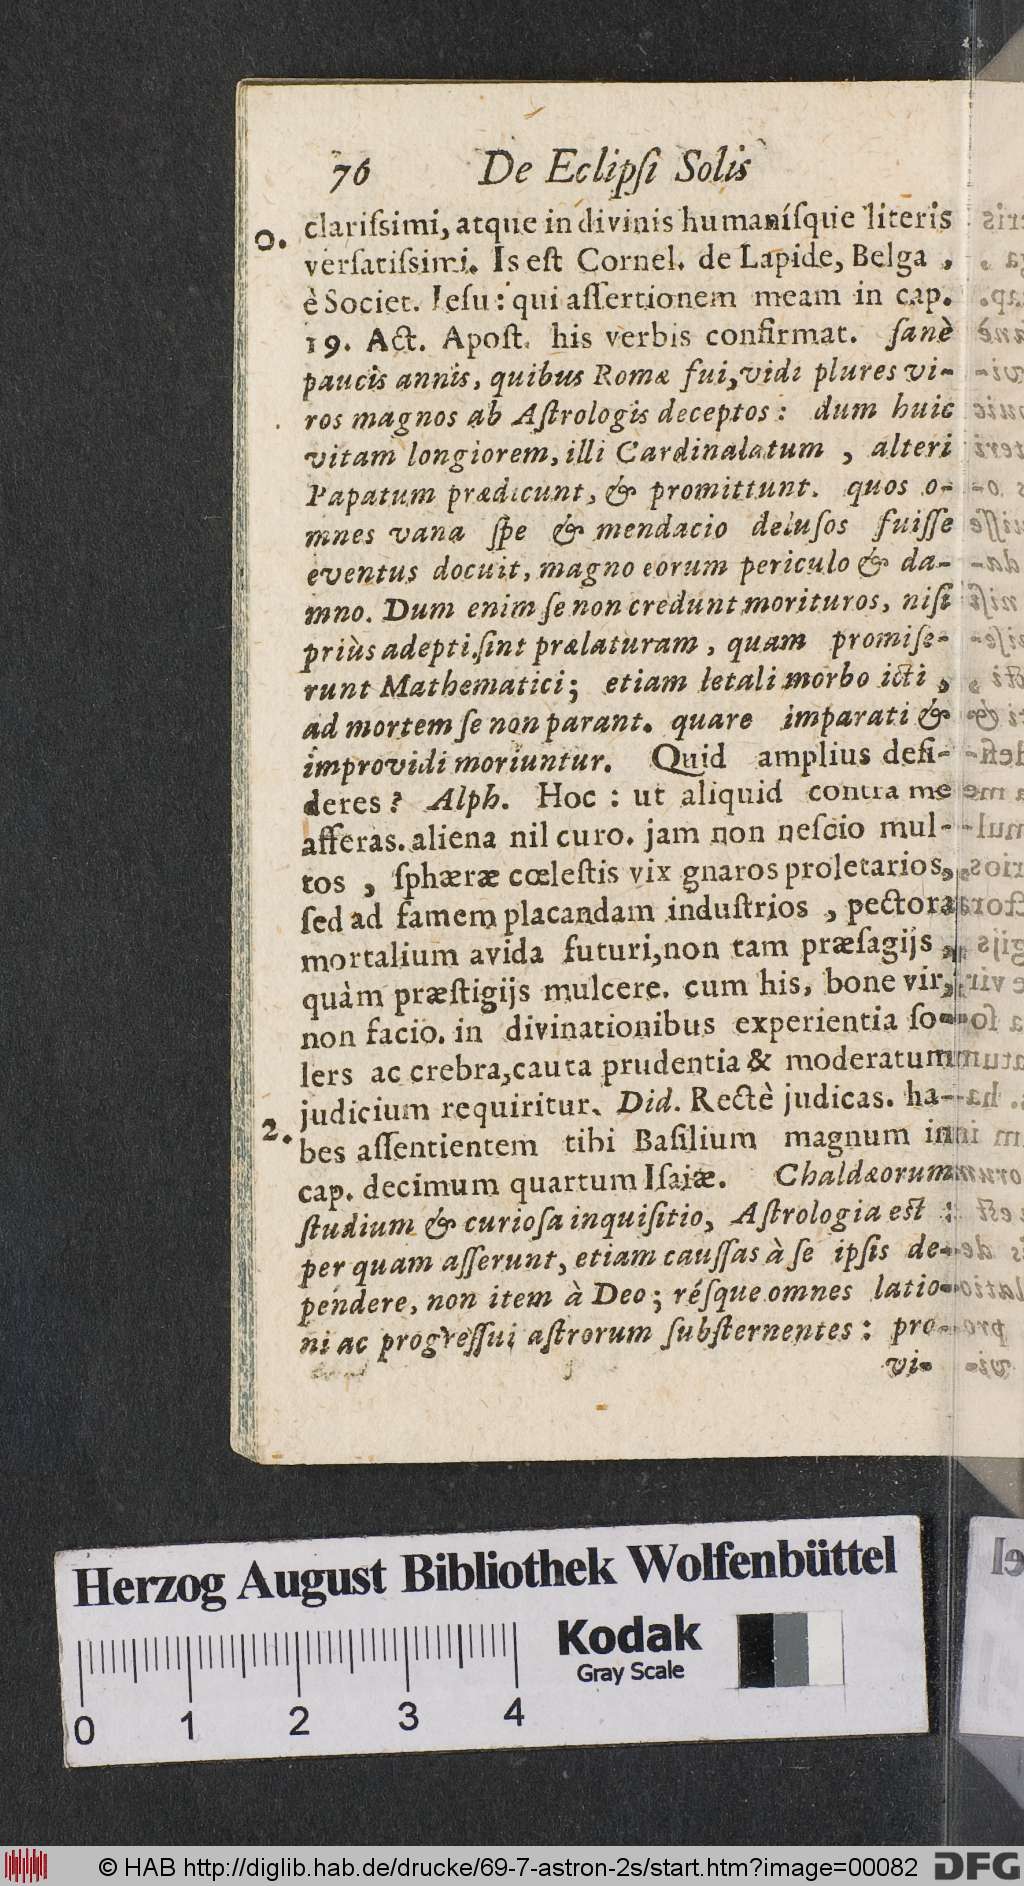 76 De Eclipſi Solis
clariſsimi, atque in divinis humaníſque literis
o. verſatiſsimi. Is eſt Cornel. de Lapide, Belga ,
è Societ. Ieſu : qui aſſertionem meam in cap.
19. Act. Apoſt. his verbis confirmat. ſanè
paucis annis, quibus Romæ fui, vidi plures vi-
ros magnos ab Aſtrologis deceptos : dum huic
vitam longiorem, illi Cardinalatum , alteri
Papatum prædicunt, & promittunt. quos o-
mnes vana ſpe & mendacio deluſos fuiſſe
eventus docuit, magno eorum periculo & da-
mno. Dum enim ſe non credunt morituros, niſi
priùs adepti ſint prælaturam , quam promiſe-
runt Mathematici; etiam letali morbo icti ,
ad mortem ſe non parant. quare imparati &
improvidi moriuntur. Quid amplius deſi-
deres? Alph. Hoc : ut aliquid contra me
afferas. aliena nil curo. jam non neſcio mul-
tos , ſphæræ cœleſtis vix gnaros proletarios,
ſed ad famem placandam induſtrios , pectora
mortalium avida futuri, non tam præſagijs ,
quàm præſtigijs mulcere. cum his, bone vir,
non facio. in divinationibus experientia ſo-
lers ac crebra, cauta prudentia & moderatum
judicium requiritur. Did. Rectè judicas. ha-
2. bes aſſentientem tibi Baſilium magnum in
cap. decimum quartum Iſaiæ. Chaldæorum
ſtudium & curioſa inquiſitio, Aſtrologia eſt :
per quam aſſerunt, etiam cauſſas à ſe ipſis de-
pendere, non item à Deo; réſque omnes latio-
ni ac progreſſui aſtrorum ſubſternentes : pro-
vi-
Herzog August Bibliothek Wolfenbüttel
Kodak
Gray Scale
0 1 2 3 4
© HAB http://diglib.hab.de/drucke/69-7-astron-2s/start.htm?image=00082 DFG